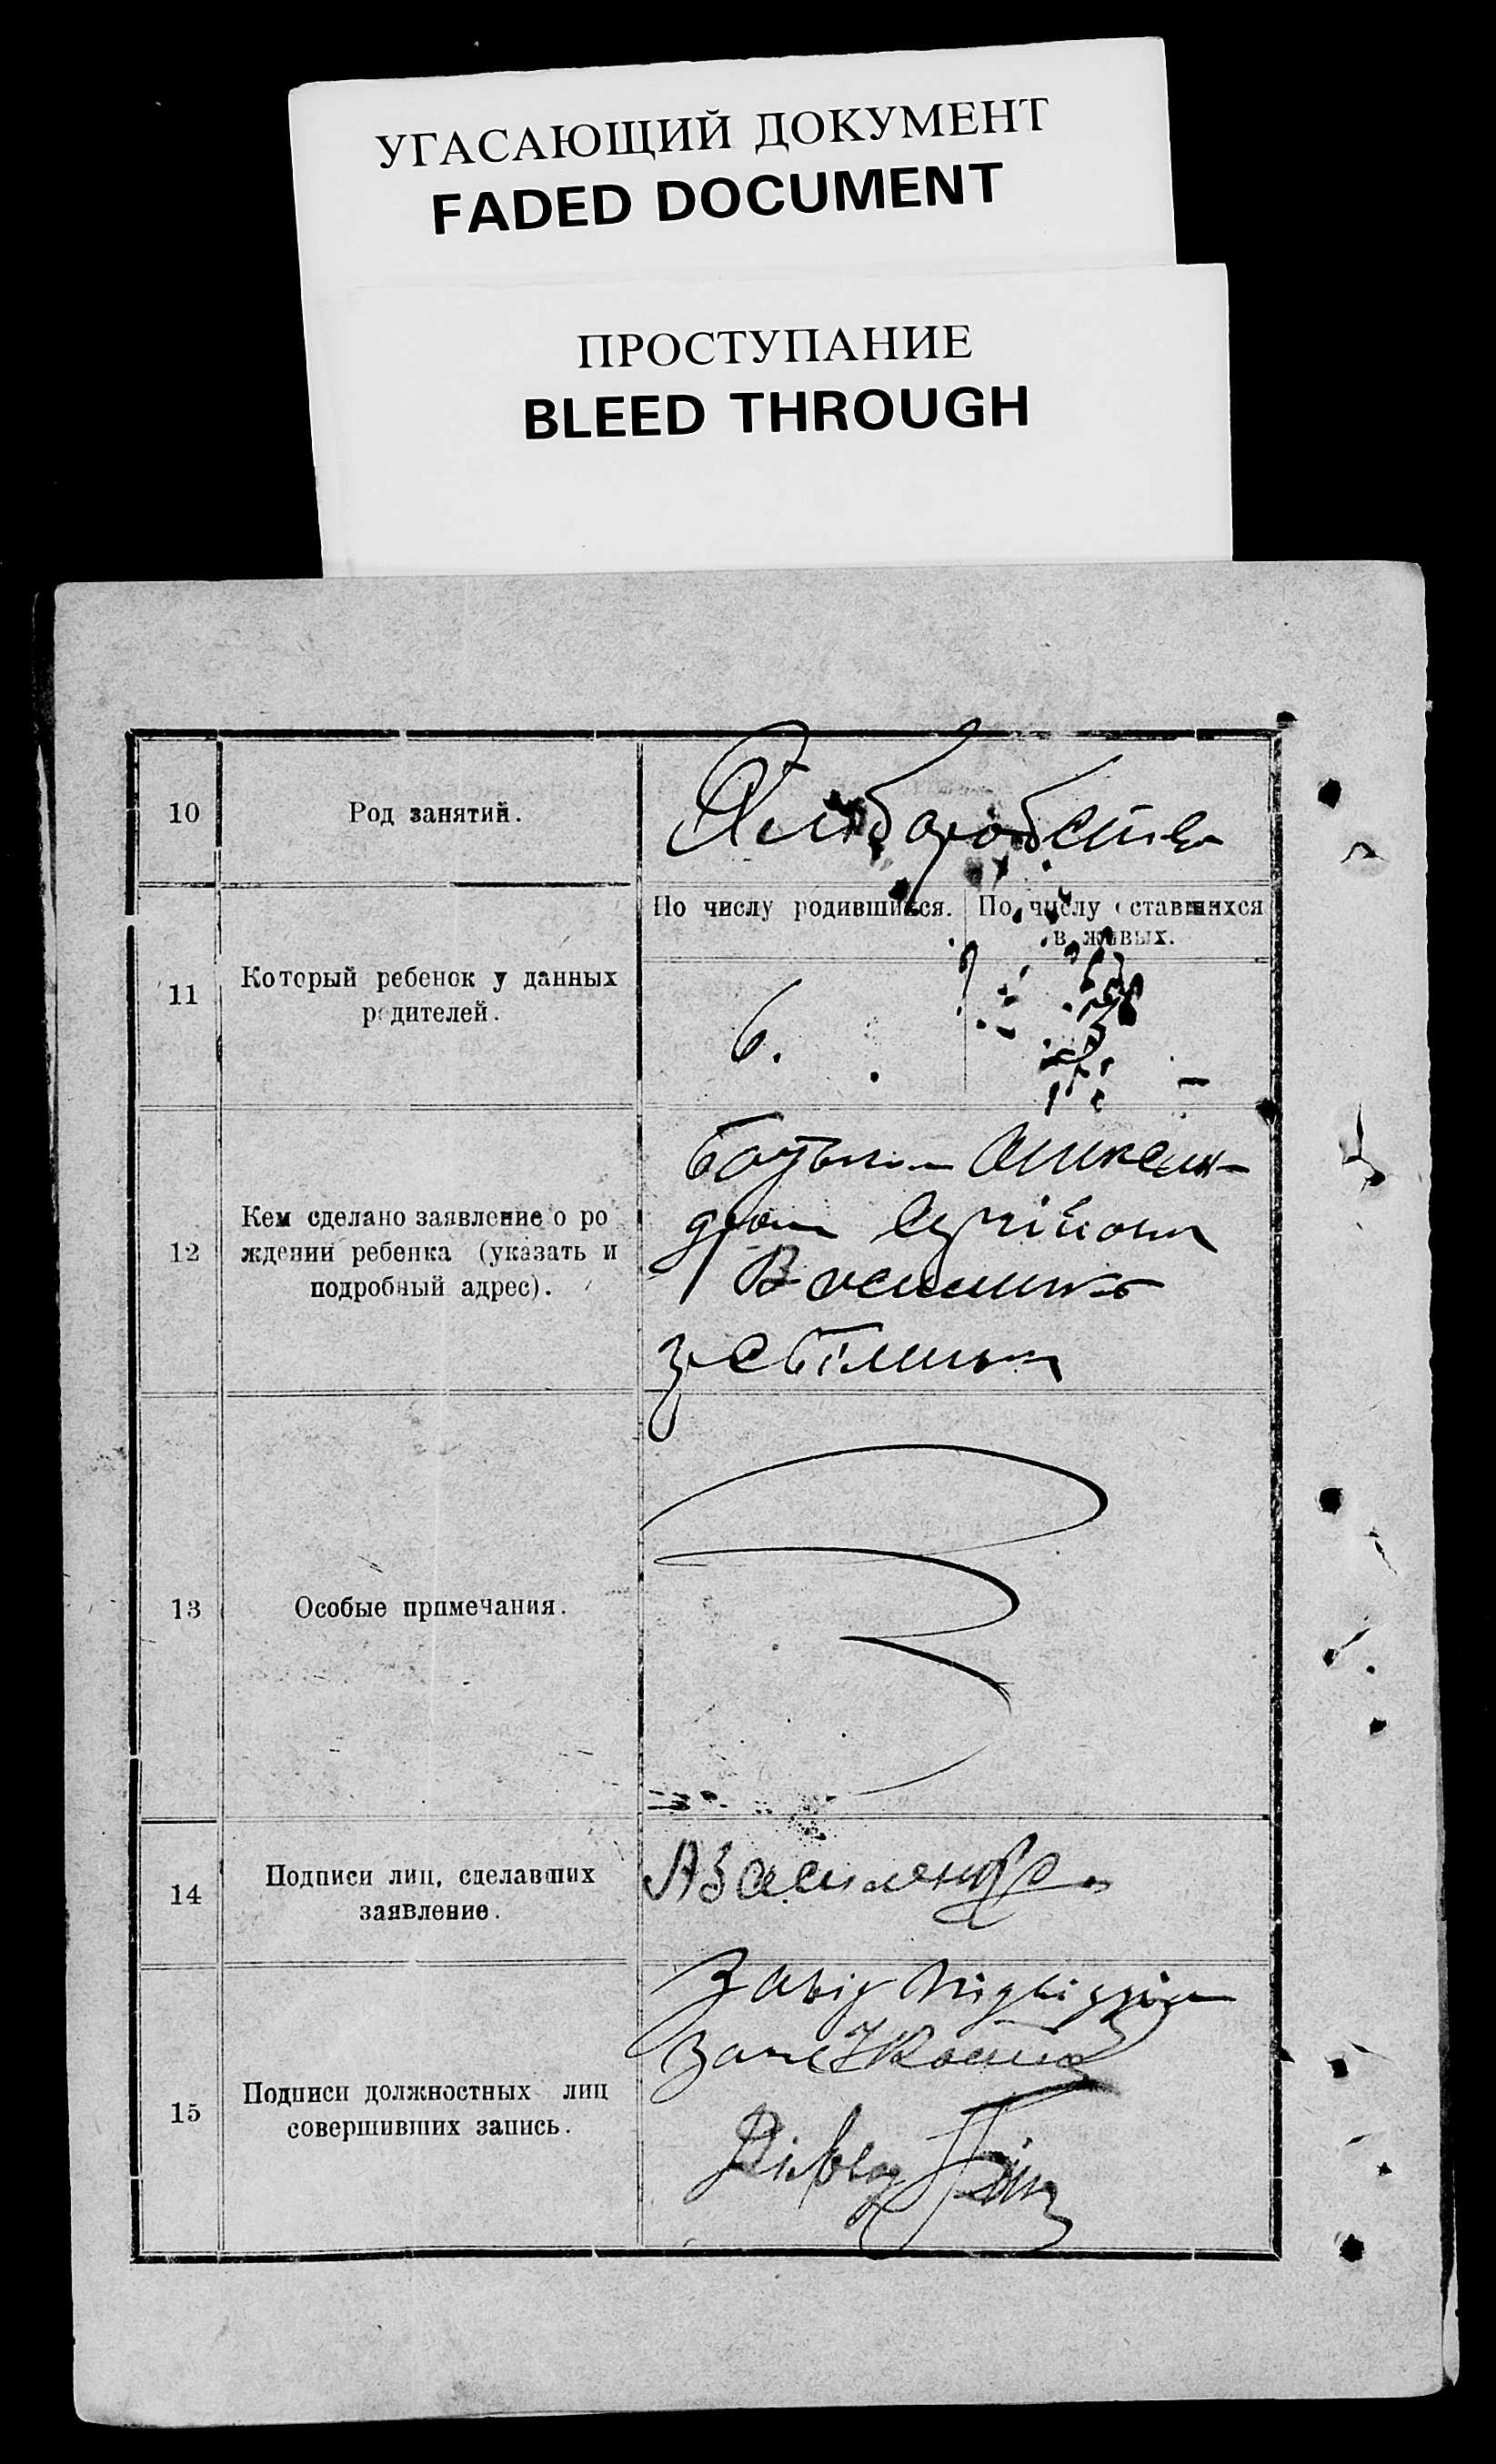 УГАСАЮЩИЙ ДОКУМЕНТ
FADED DOCUMENT
ПРОСТУПАНИЕ
BLEED THROUGH
10
Род занятий.
Хліборобство
11
Который ребенок у данных
родителей.
По числу родившихся.
По числу оставшихся
в живых.
6.
12
Кем сделано заявление о ро
ждении ребенка (указать и
подробный адрес).
батьком Олексан-
дром
Василенко
13
Особые примечания.
14
Подписи лиц, сделавших
заявление.
А Василенко
15
Подписи должностных лиц
совершивших запись.
Завід підвідділу
Загс
Діловод